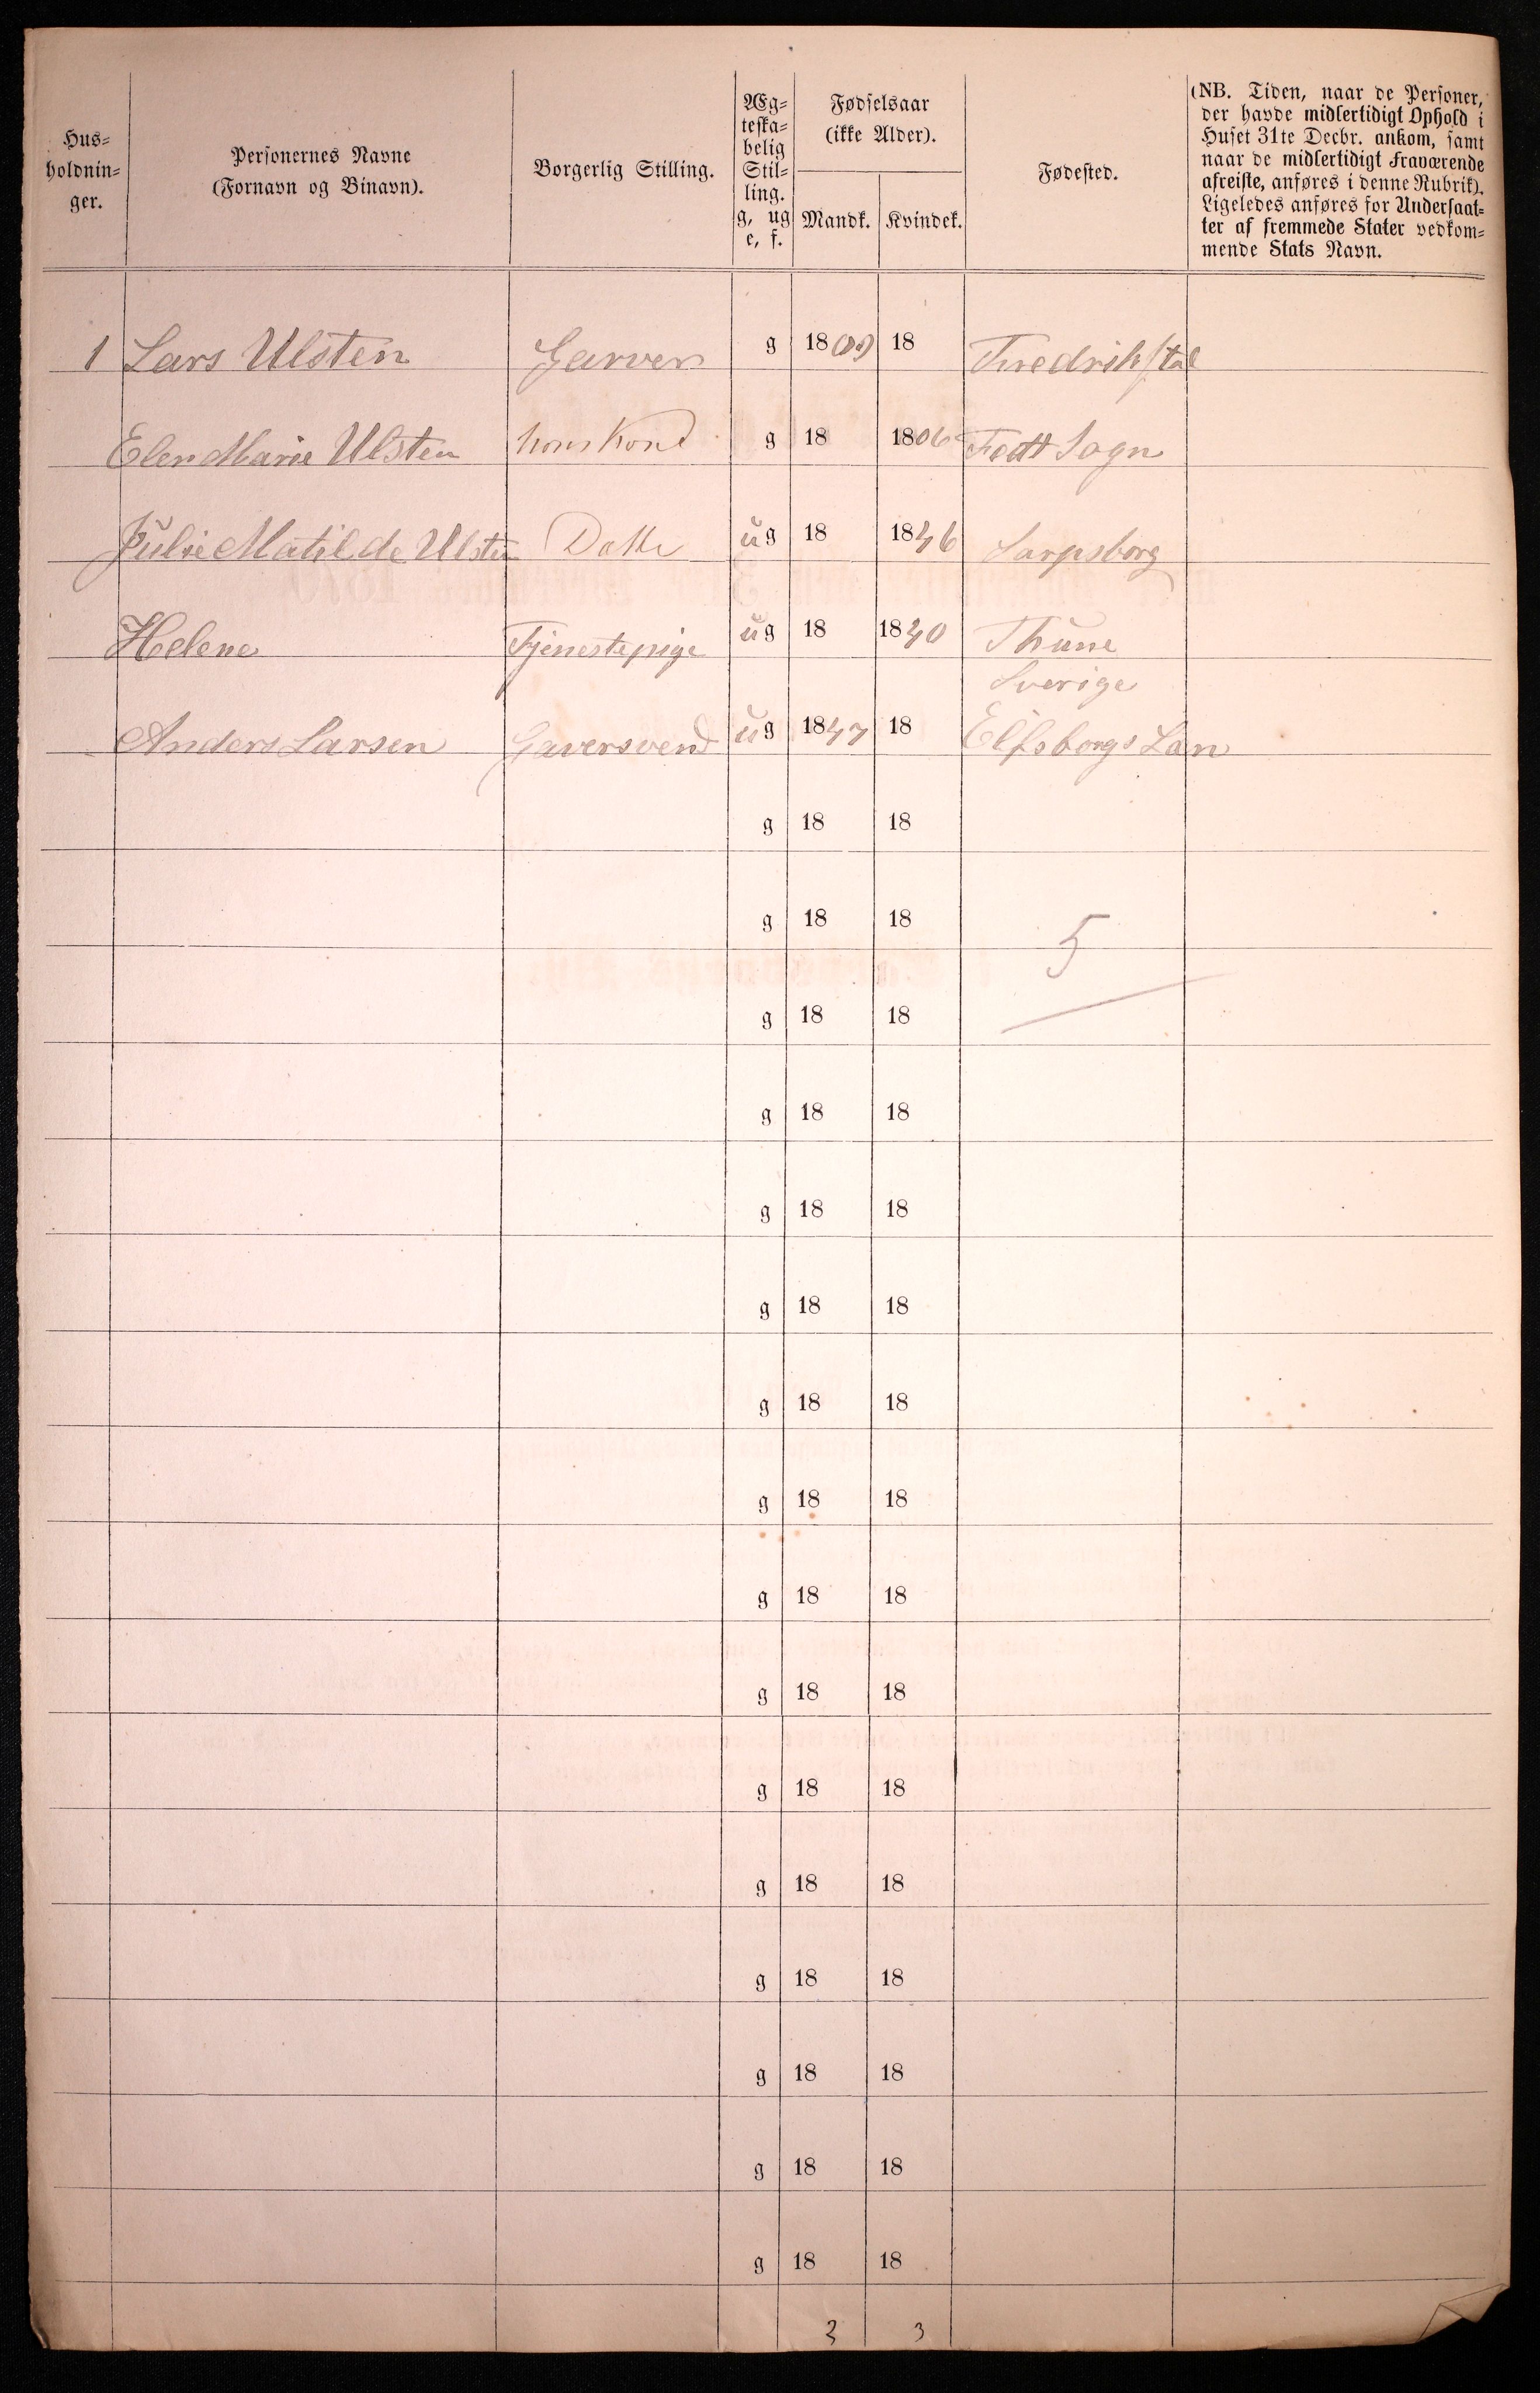 Hus=
holdnin=
ger.
Personernes Navne
(Fornavn og Binavn).
Borgerlig Stilling.
Æg=
teska=
belig
Stil=
ling.
g, ug
e, f.
Fødselsaar
(ikke Alder).
Mandk.
Kvindek.
Fødested.
(NB. Tiden, naar de Personer,
der havde midlertidigt Ophold i
Huset 31te Decbr. ankom, samt
naar de midlertidigt Fraværende
afreiste, anføres i denne Rubrik).
Ligeledes anføres for Undersaat=
ter af fremmede Stater vedkom=
mende Stats Navn.
1 Lars Ulsten Garver g 1809 18 Fredrikstal
Elen Marie Ulsten hans Kone g 18 1806 Sogn
Julie Matilde Ulsten Datte ug 18 1846 Sarpsborg
Helene Tjenestepige ug 18 1840 Thune
Sverige
Anders Larsen Garversvend ug 1847 18 Elfsborgs Lan
g 18 18
g 18 18 5
g 18 18
g 18 18
g 18 18
g 18 18
g 18 18
g 18 18
g 18 18
g 18 18
g 18 18
g 18 18
g 18 18
g 18 18
g 18 18
g 18 18
2 3